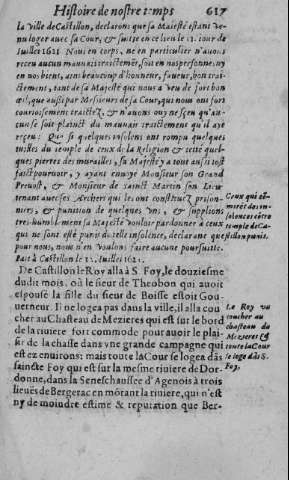 Histoire de nostre temps 617
la ville de Castillon, declarons que sa Maiesté estant ve-
nu loger avec sa Cour, & suitte en ce lieu le 11. iour de
Iuillet 1621 Nous en corps, ne en particulier n'auons
receu aucun mauuais traictemẽt, soit en nos personnes, ny
en nos biens, ains beaucoup d'honneur, faueur, bon trai-
ctement, tant de sa Majesté qui nous a veu de fort bon
œil, que aussi par Messieurs de sa Cour, qui nous ont fort
courtoisement traictez, & n'auons ouy ne sçeu qu'au-
cun se soit plainct du mauuais traictement qu'il aye
reçeu: Que si quelques insolens ont rompu quelques
tuilles du temple de ceux de la Religion & getté quel-
ques pierres des murailles, sa Majesté y a tout aussi tost
faict pouruoir, y ayant enuoyé Monsieur son Grand
Preuost, & Monsieur de sainct Martin son Lieu-
tenant auec ses Archers qui les ont constituez prison-
niers, & punition de quelques vns, & supplions
tres-humble sa Majesté vouloir pardonner à ceux
qui ne sont esté punis de telle insolence, declarant que
pour nous, nous n'en voulons faire aucune poursuitte.
Fait à Castillon le 12. Iuillet 1621.
Ceux qui cõ-
mirẽt des in-
solences cõtre
temple de Ca-
stillon punis.
De Castillon le Roy alla à S. Foy, le douziesme
dudit mois, où le sieur de Theobon qui auoit
espousé la fille du sieur de Boisse estoit Gou-
uerneur. Il ne logea pas dans la ville, il alla cou
cher au Chasteau de Mezieres qui est sur le bord
de la riuiere fort commode pour auoir le plai-
sir de la chasse dans vne grande campagne qui
est ez enuirons: mais toute la Cour se logea dãs
saincte Foy qui est sur la mesme riuiere de Dor-
donne, dans la Seneschaussee d'Agenois à trois
lieuës de Bergerac en mõtant la riuiere, qui n'est
ny de moindre estime & reputation que Ber-
Le Roy va
coucher au
chasteau du
Mezieres &
toute la Cour
se loge dãs S.
Foy.